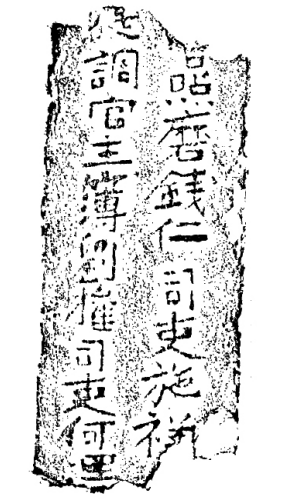 照磨錢仁 司吏施祥
提調官主簿劉權 司吏何